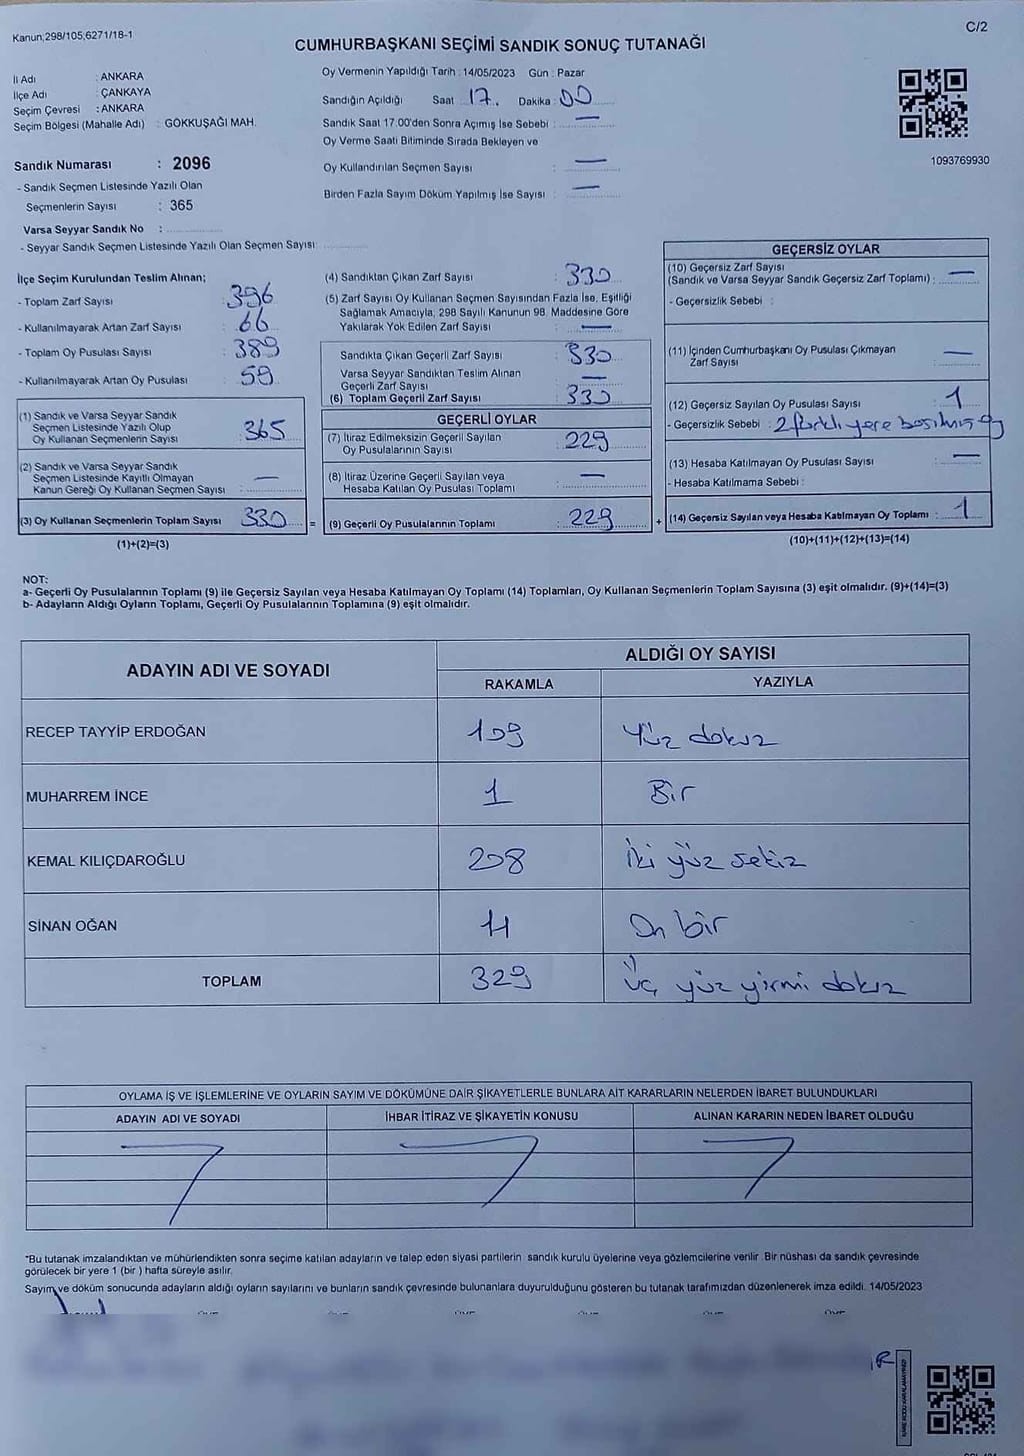 Kanun;298/105;6271/18-1
C/2
CUMHURBAŞKANI SEÇİMİ SANDIK SONUÇ TUTANAĞI
İl Adı : ANKARA
İlçe Adı : ÇANKAYA
Seçim Çevresi : ANKARA
Seçim Bölgesi (Mahalle Adı) : GÖKKUŞAĞI MAH.
Oy Vermenin Yapıldığı Tarih : 14/05/2023 Gün : Pazar
Sandığın Açıldığı Saat 17. Dakika : 00
Sandık Saat 17.00'den Sonra Açımış İse Sebebi : —
Oy Verme Saati Bitiminde Sırada Bekleyen ve
Oy Kullandırılan Seçmen Sayısı : —
Birden Fazla Sayım Döküm Yapılmış İse Sayısı : —
1093769930
Sandık Numarası : 2096
- Sandık Seçmen Listesinde Yazılı Olan
Seçmenlerin Sayısı : 365
Varsa Seyyar Sandık No :
- Seyyar Sandık Seçmen Listesinde Yazılı Olan Seçmen Sayısı:
İlçe Seçim Kurulundan Teslim Alınan;
- Toplam Zarf Sayısı : 396
- Kullanılmayarak Artan Zarf Sayısı : 66
- Toplam Oy Pusulası Sayısı : 389
- Kullanılmayarak Artan Oy Pusulası : 59
(1) Sandık ve Varsa Seyyar Sandık
Seçmen Listesinde Yazılı Olup
Oy Kullanan Seçmenlerin Sayısı : 365
(2) Sandık ve Varsa Seyyar Sandık
Seçmen Listesinde Kayıtlı Olmayan
Kanun Gereği Oy Kullanan Seçmen Sayısı : —
(3) Oy Kullanan Seçmenlerin Toplam Sayısı 330 =
(1)+(2)=(3)
(4) Sandıktan Çıkan Zarf Sayısı : 330
(5) Zarf Sayısı Oy Kullanan Seçmen Sayısından Fazla İse, Eşitliği
Sağlamak Amacıyla, 298 Sayılı Kanunun 98. Maddesine Göre
Yakılarak Yok Edilen Zarf Sayısı : —
Sandıkta Çıkan Geçerli Zarf Sayısı : 330
Varsa Seyyar Sandıktan Teslim Alınan
Geçerli Zarf Sayısı : —
(6) Toplam Geçerli Zarf Sayısı : 330
GEÇERLİ OYLAR
(7) İtiraz Edilmeksizin Geçerli Sayılan
Oy Pusulalarının Sayısı : 229
(8) İtiraz Üzerine Geçerli Sayılan veya
Hesaba Katılan Oy Pusulası Toplamı : —
(9) Geçerli Oy Pusulalarının Toplamı : 229 +
GEÇERSİZ OYLAR
(10) Geçersiz Zarf Sayısı
(Sandık ve Varsa Seyyar Sandık Geçersiz Zarf Toplamı) : —
- Geçersizlik Sebebi :
(11) İçinden Cumhurbaşkanı Oy Pusulası Çıkmayan
Zarf Sayısı : —
(12) Geçersiz Sayılan Oy Pusulası Sayısı : 1
- Geçersizlik Sebebi : 2 farklı yere basılmış oy
(13) Hesaba Katılmayan Oy Pusulası Sayısı : —
- Hesaba Katılmama Sebebi :
(14) Geçersiz Sayılan veya Hesaba Katılmayan Oy Toplamı : 1
(10)+(11)+(12)+(13)=(14)
NOT:
a- Geçerli Oy Pusulalarının Toplamı (9) ile Geçersiz Sayılan veya Hesaba Katılmayan Oy Toplamı (14) Toplamları, Oy Kullanan Seçmenlerin Toplam Sayısına (3) eşit olmalıdır. (9)+(14)=(3)
b- Adayların Aldığı Oyların Toplamı, Geçerli Oy Pusulalarının Toplamına (9) eşit olmalıdır.
ADAYIN ADI VE SOYADI
ALDIĞI OY SAYISI
RAKAMLA YAZIYLA
RECEP TAYYİP ERDOĞAN 109 Yüz dokuz
MUHARREM İNCE 1 Bir
KEMAL KILIÇDAROĞLU 208 İki yüz sekiz
SİNAN OĞAN 11 On bir
TOPLAM 329 Üç yüz yirmi dokuz
OYLAMA İŞ VE İŞLEMLERİNE VE OYLARIN SAYIM VE DÖKÜMÜNE DAİR ŞİKAYETLERLE BUNLARA AİT KARARLARIN NELERDEN İBARET BULUNDUKLARI
ADAYIN ADI VE SOYADI İHBAR İTİRAZ VE ŞİKAYETİN KONUSU ALINAN KARARIN NEDEN İBARET OLDUĞU
*Bu tutanak imzalandıktan ve mühürlendikten sonra seçime katılan adayların ve talep eden siyasi partilerin sandık kurulu üyelerine veya gözlemcilerine verilir. Bir nüshası da sandık çevresinde
görülecek bir yere 1 (bir ) hafta süreyle asılır.
Sayım ve döküm sonucunda adayların aldığı oyların sayılarını ve bunların sandık çevresinde bulunanlara duyurulduğunu gösteren bu tutanak tarafımızdan düzenlenerek imza edildi. 14/05/2023
KARE KODU KARALAMAYINIZ!